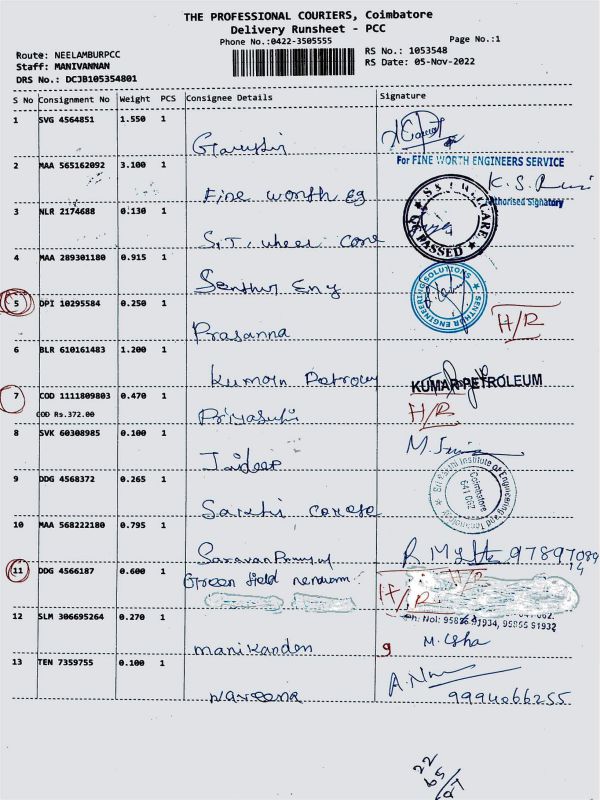 THE PROFESSIONAL COURIERS, Coimbatore
Delivery Runsheet - PCC
Phone No.:0422-3505555
Page No.:1
Route: NEELAMBURPCC
Staff: MANIVANNAN
DRS No.: DCJB105354801
RS No.: 1053548
RS Date: 05-Nov-2022
S No Consignment No Weight PCS Consignee Details Signature
1 SVG 4564851 1.550 1
For FINE WORTH ENGINEERS SERVICE
2 MAA 565162092 3.100 1
K.S.
Authorised Signatory
Fine worth Eg
3 NLR 2174688 0.130 1
PASSED
S.T. wheel care
4 MAA 289301180 0.915 1
Senthur Eng
SENTHUR ENGINEERING SOLUTIONS
5 DPI 10295584 0.250 1
H/R
Prasanna
6 BLR 610161483 1.200 1
Kumaran Petrol
KUMAR PETROLEUM
7 COD 1111809803 0.470 1
COD Rs.372.00
H/R
Priyasuthi
8 SVK 60308985 0.100 1
M.
Jaideep
9 DDG 4568372 0.265 1
Institute of Engineering and Technology
Coimbatore
641 062
Sakthi
10 MAA 568222180 0.795 1
Saravan
11 DDG 4566187 0.600 1
Green field
H/R
12 SLM 306695264 0.270 1
91934, 95855 91932
manikanden
9 M. Usha
13 TEN 7359755 0.100 1
A.
naveena
9994066255